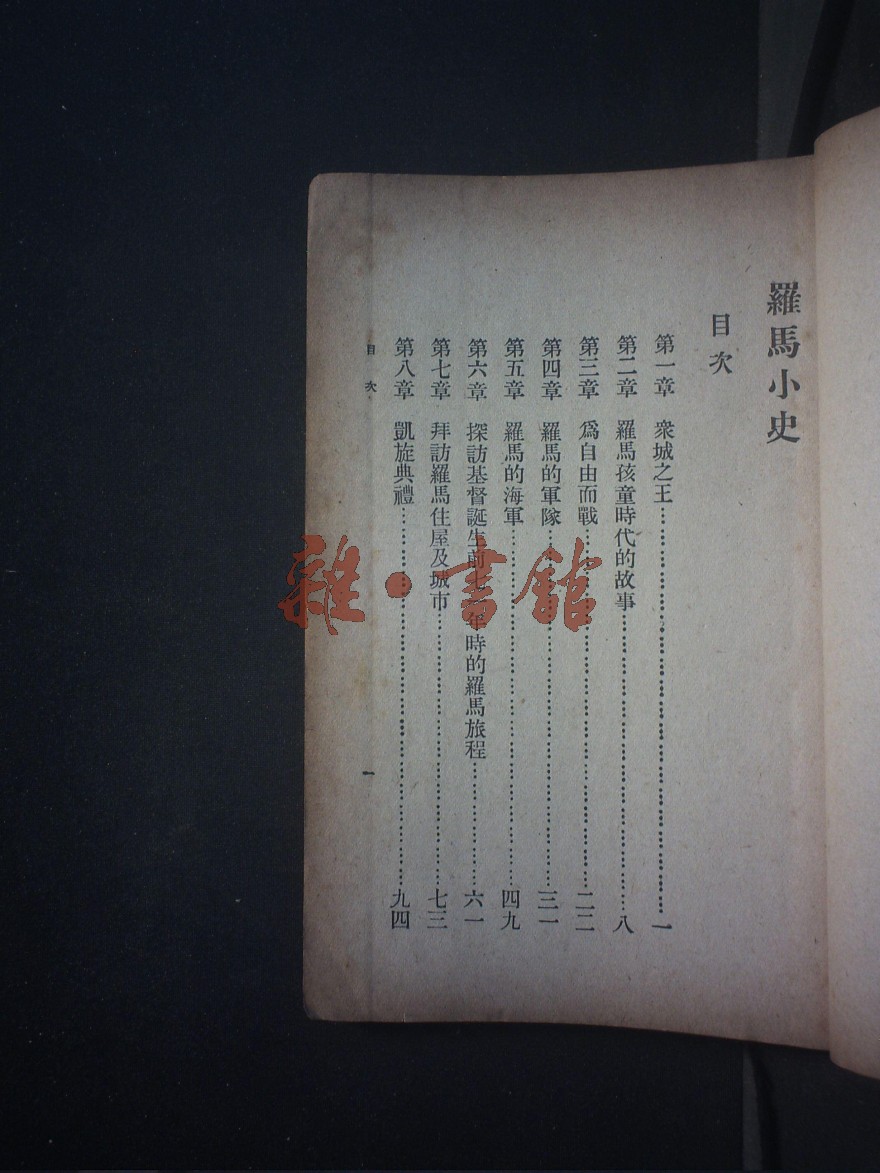 羅馬小史
目次
第一章 衆城之王…………一
第二章 羅馬孩童時代的故事…………八
第三章 爲自由而戰…………二二
第四章 羅馬的軍隊…………三一
第五章 羅馬的海軍…………四九
第六章 探訪基督誕生前 年時的羅馬旅程…………六一
第七章 拜訪羅馬住屋及城市…………七三
第八章 凱旋典禮…………九四
目次
一
雜·書館